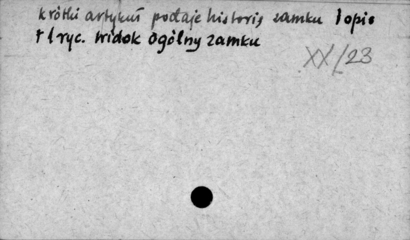 krótki artykuł podaje historię zamku i opis
+ 1 ryc. widok ogólny zamku
XX/23